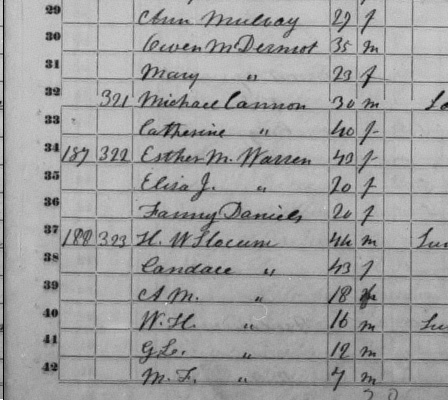 29 Ann Mulvay 27 f
30 Owen McDermot 35 m
31 Mary " 23 f
32 321 Michael Cannon 30 m
33 Catherine " 40 f
34 187 322 Esther M. Warren 43 f
35 Eliza J. " 20 f
36 Fanny Daniels 20 f
37 188 323 H. W. Slocum 44 m
38 Candace " 43 f
39 A. M. " 18
40 W. H. " 16 m
41 G. L. " 12 m
42 M. F. " 7 m